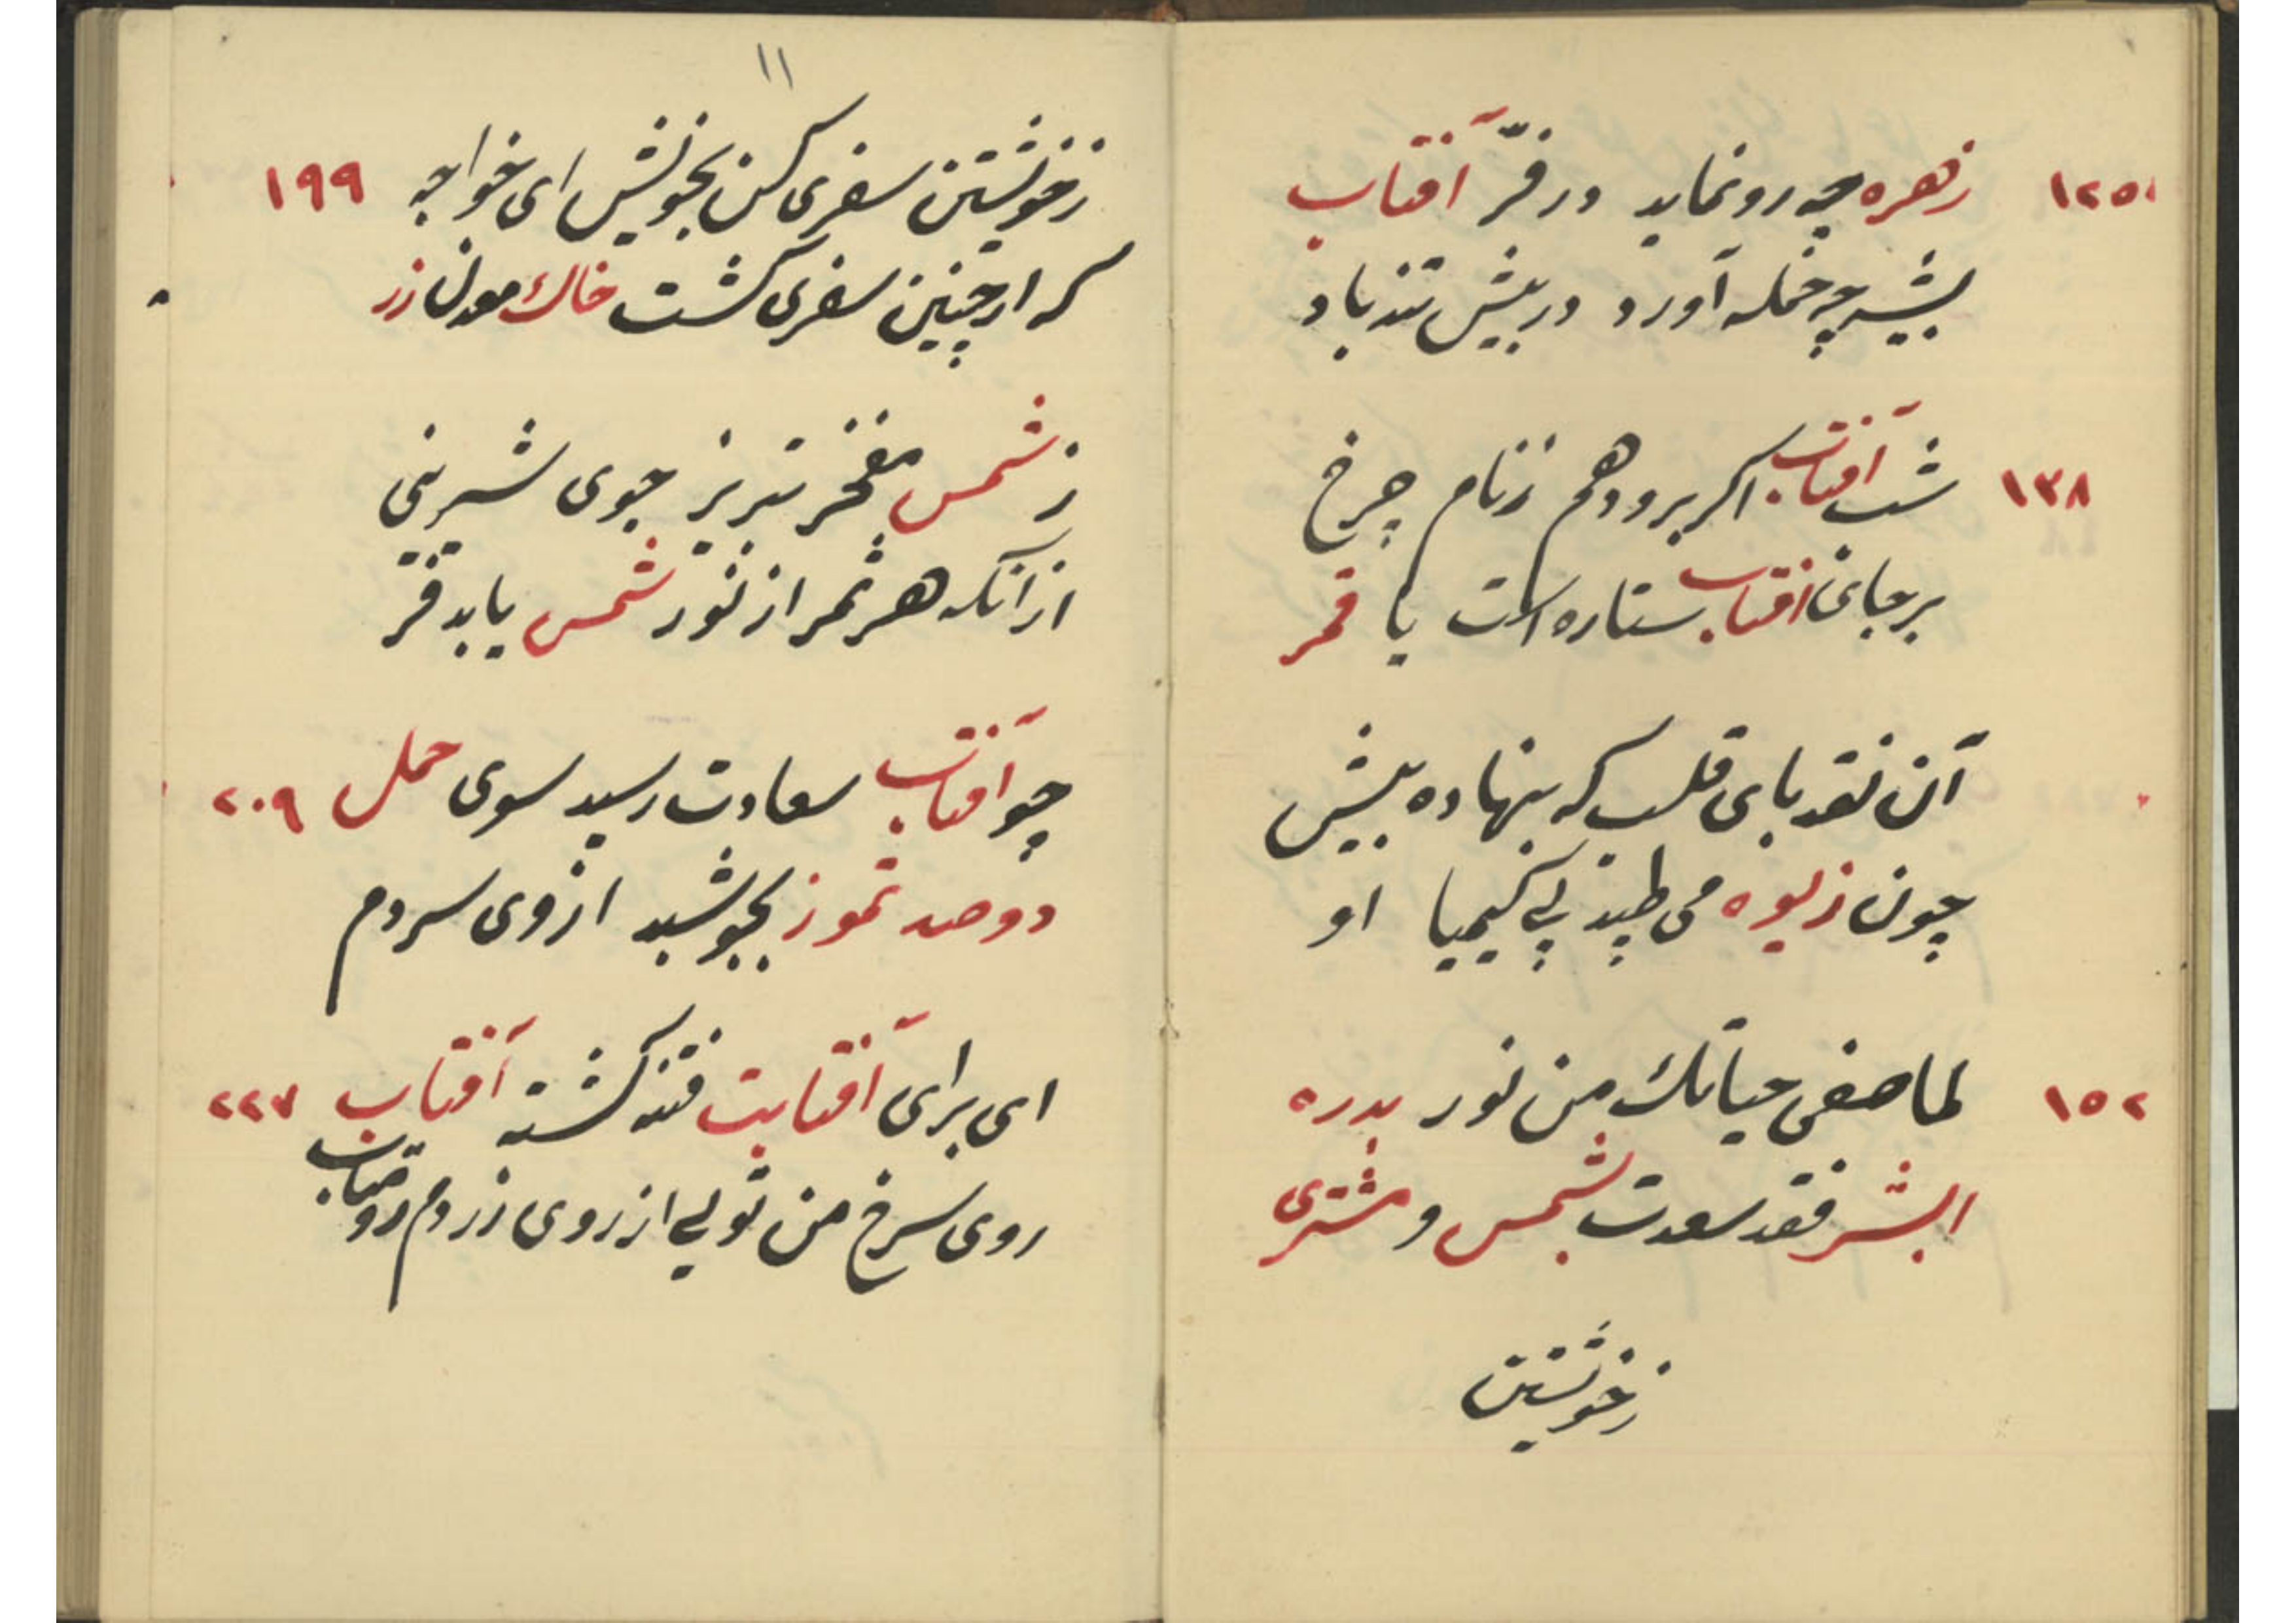 ۱۲۵ زهره چه رو نماید در فرّ آفتاب
پشه چه حمله آورد در پیش تندباد
۱۳۸ شب آفتاب اگر برود هم ز نام چرخ
بر جای آفتاب ستاره است یا قمر
آن نقدهای قلب که بنهاده پیش
چون زیوه می طپند پی کیمیا او
۱۵۲ لما صفی حیاتک من نور بدره
ابشر فقد سعدت بشمس و مشتری
ز خویشتن
۱۱
ز خویشتن سفری کن بخویش ای خواجه ۱۹۹
که از چنین سفری گشت خاک معدن زر
ز شمس مفخر تبریز جوی شیرینی
از آنکه هر ثمر از نور شمس یابد فر
چو آفتاب سعادت رسید سوی حمل ۲۰۹
دو صد تموز بجوشید از وی سردم
ای برای آفتابت فتنه گشته آفتاب ۲۲۷
روی سرخ من تویی از روی زردم رو متاب